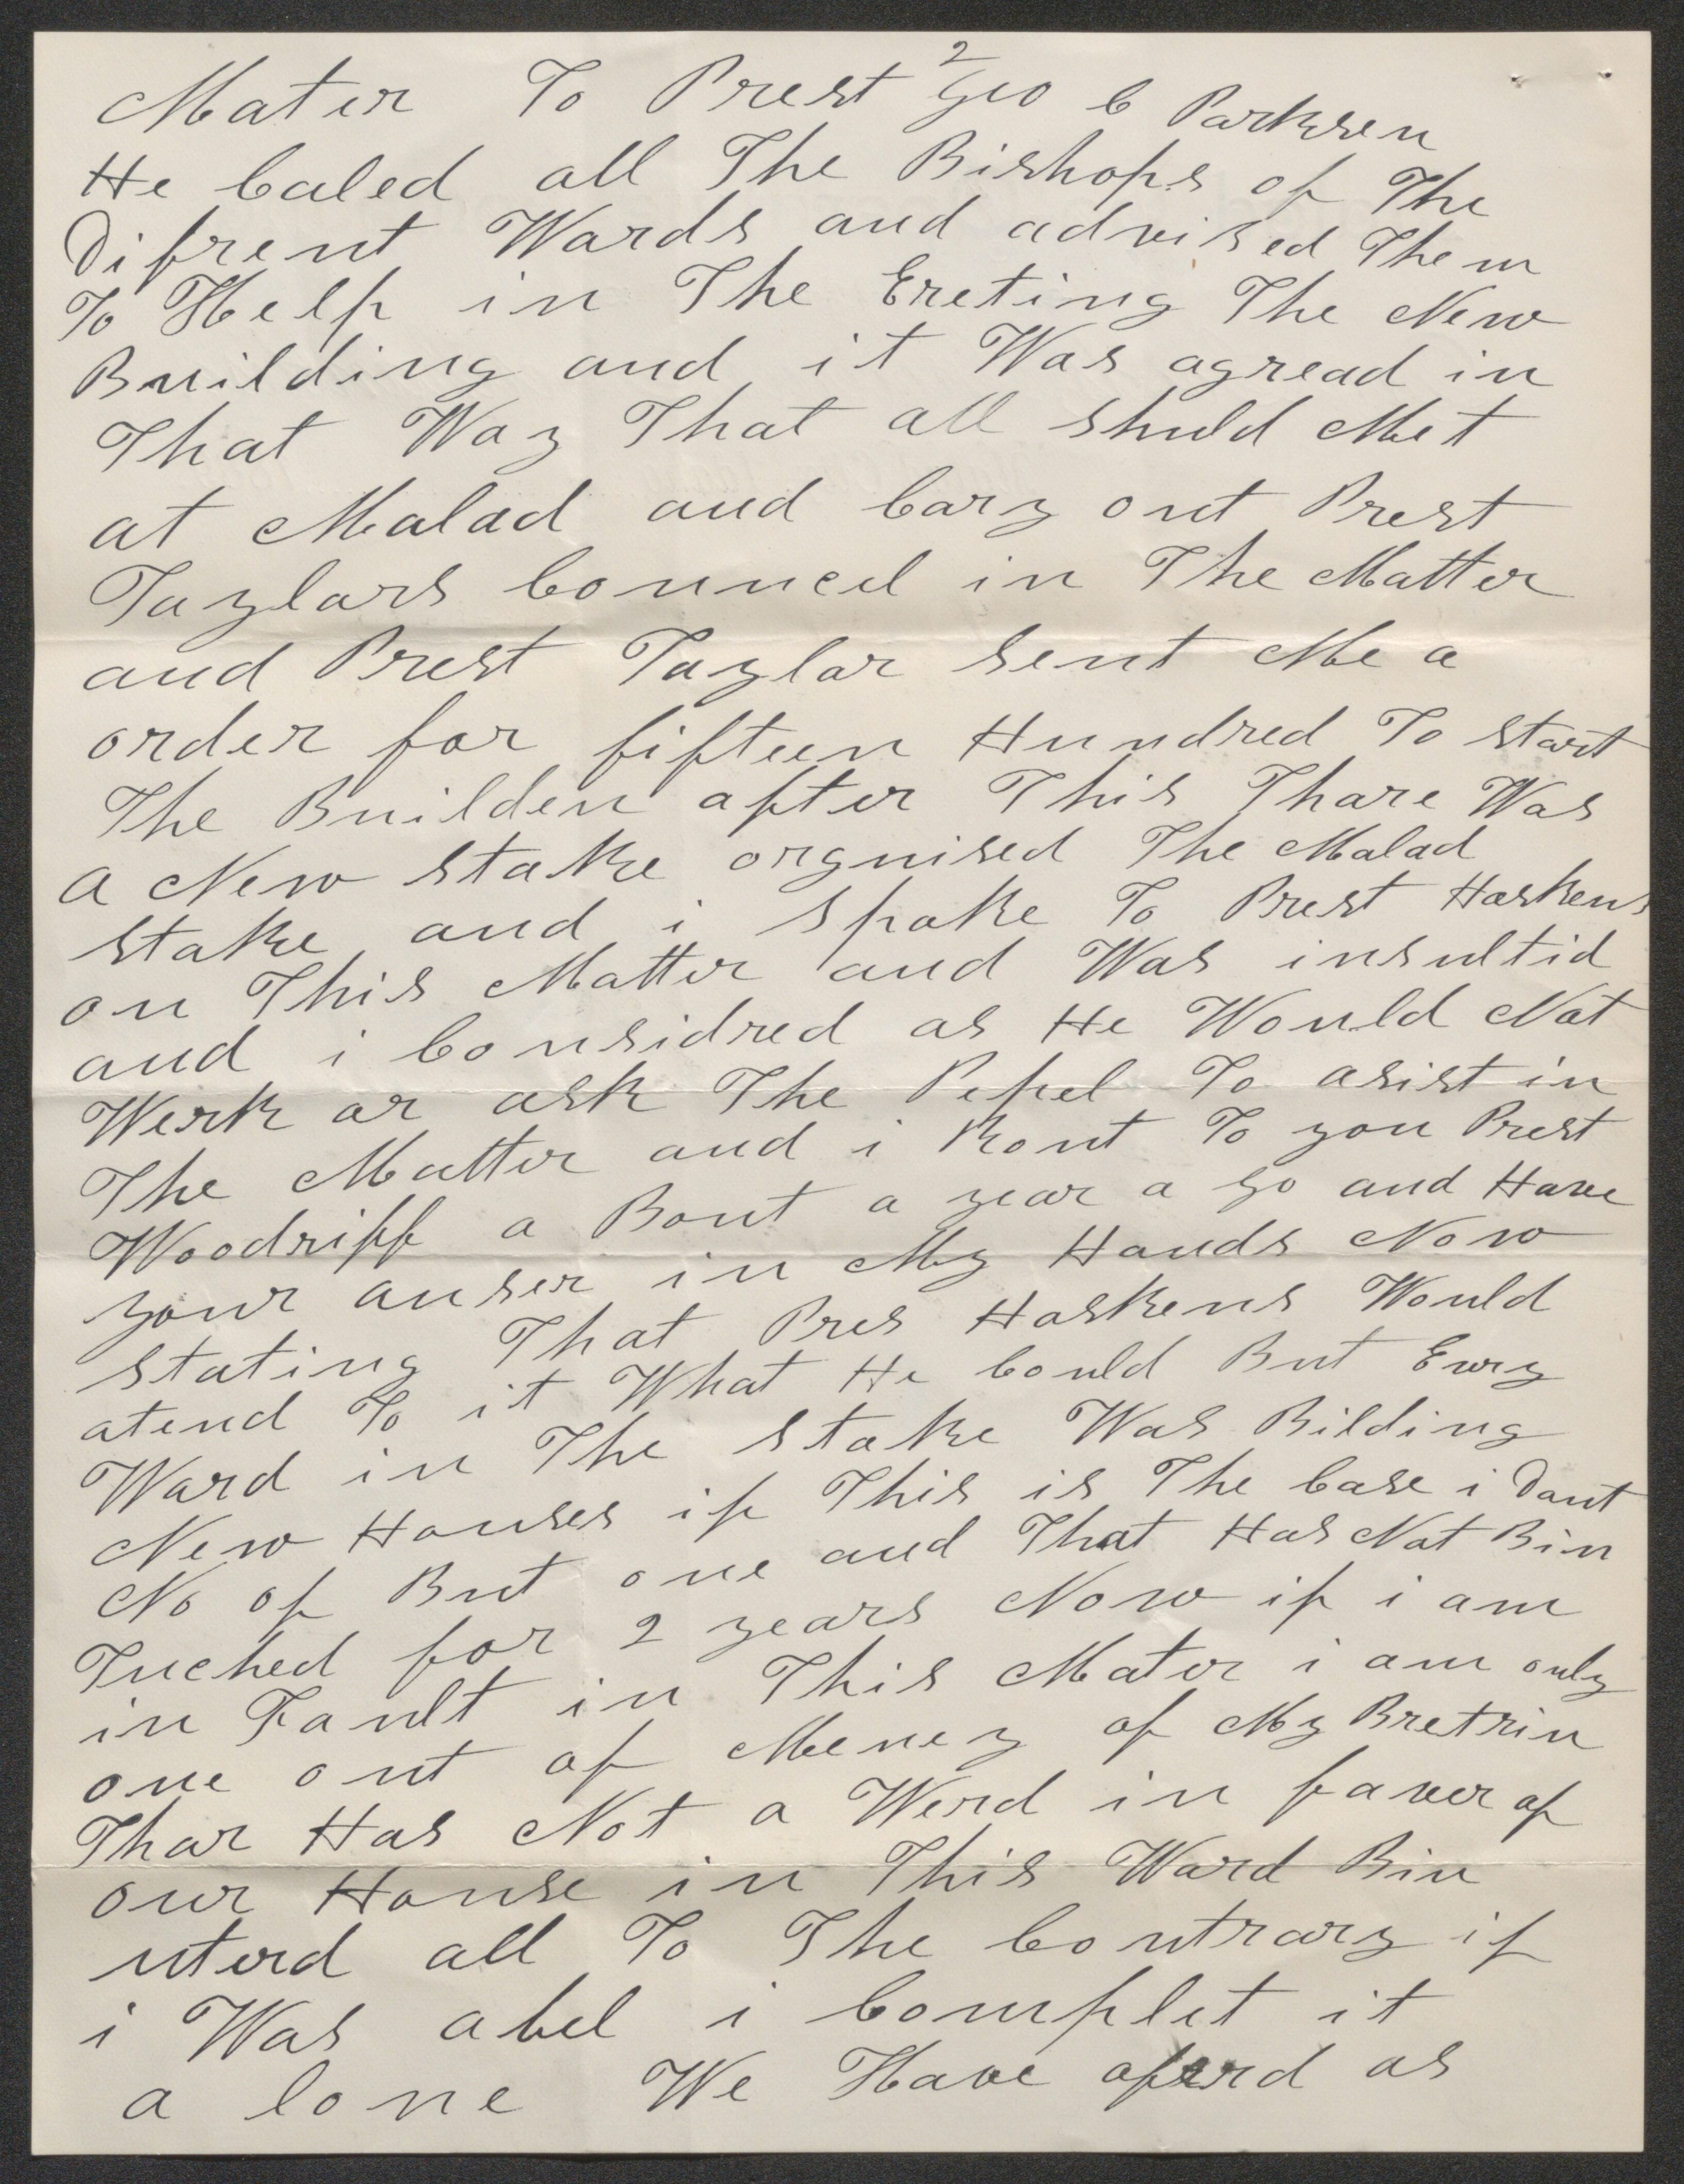 2
Mater To Prest Geo C Parksen
He Caled all The Bishops of The
Difrent Wards and advised Them
To Help in The Ereting The New
Building and it Was agread in
That Way That all shuld Met
at Malad and Cary out Prest
Taylars Councel in The Matter
and Prest Taylar sent Me a
order for fifteen Hundred To start
The Builden after This Thare Was
a New stake orgnised The Malad
stake and i spoke To Prest Haskens
on This Matter and Was insultid
and i Considred as He Would Nat
Werk or ask The Pepel To asist in
The Matter and i Rout To you Prest
Woodriff a Bout a year a go and Have
your anser in My Hands Now
stating That Pres Haskens Would
atend To it What He Could But Evry
Ward in The stake Was Bilding
New Houses if This is The Case i Dont
No of But one and That Has Nat Bin
Tuched for 2 years Now if i am
in Fault in This Mater i am only
one out of Meney of My Bretrin
Thar Has Not a Werd in faver of
our House in This Ward Bin
uterd all To The Contrary if
i Was abel i Complet it
a lone We Have aferd as